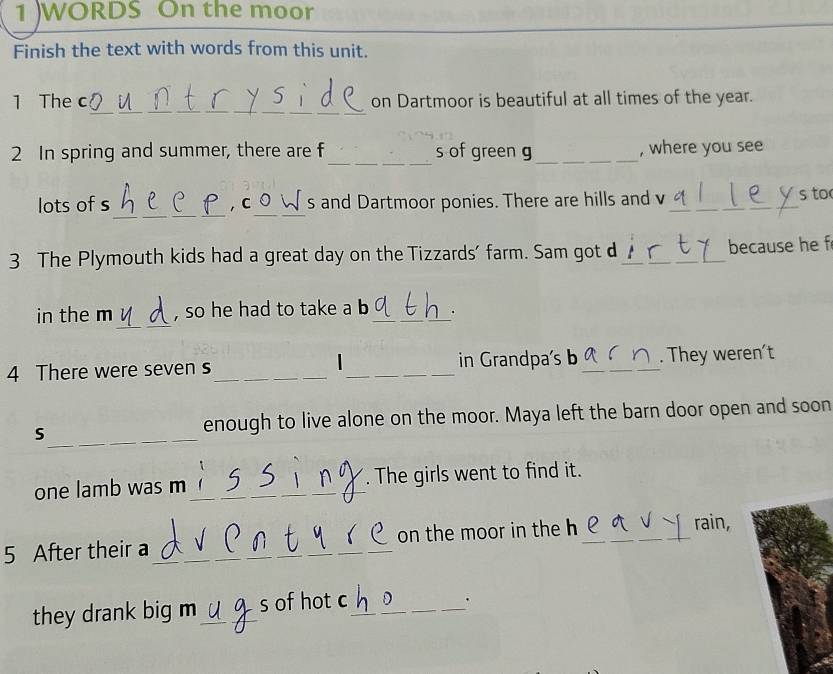 1 WORDS On the moor
Finish the text with words from this unit.
1 The countryside on Dartmoor is beautiful at all times of the year.
2 In spring and summer, there are f _ _ _ _ s of green g _ _ _ _, where you see
lots of sheep, cows and Dartmoor ponies. There are hills and valleys too
3 The Plymouth kids had a great day on the Tizzards' farm. Sam got dirty because he fe
in the mud, so he had to take a bath.
4 There were seven s _ _ _ _ l _ _ _ _ in Grandpa's barn. They weren't
s _ _ _ _ _ enough to live alone on the moor. Maya left the barn door open and soon
one lamb was missing. The girls went to find it.
5 After their adventure on the moor in the heavy rain,
they drank big mugs of hot cho _ _ _.